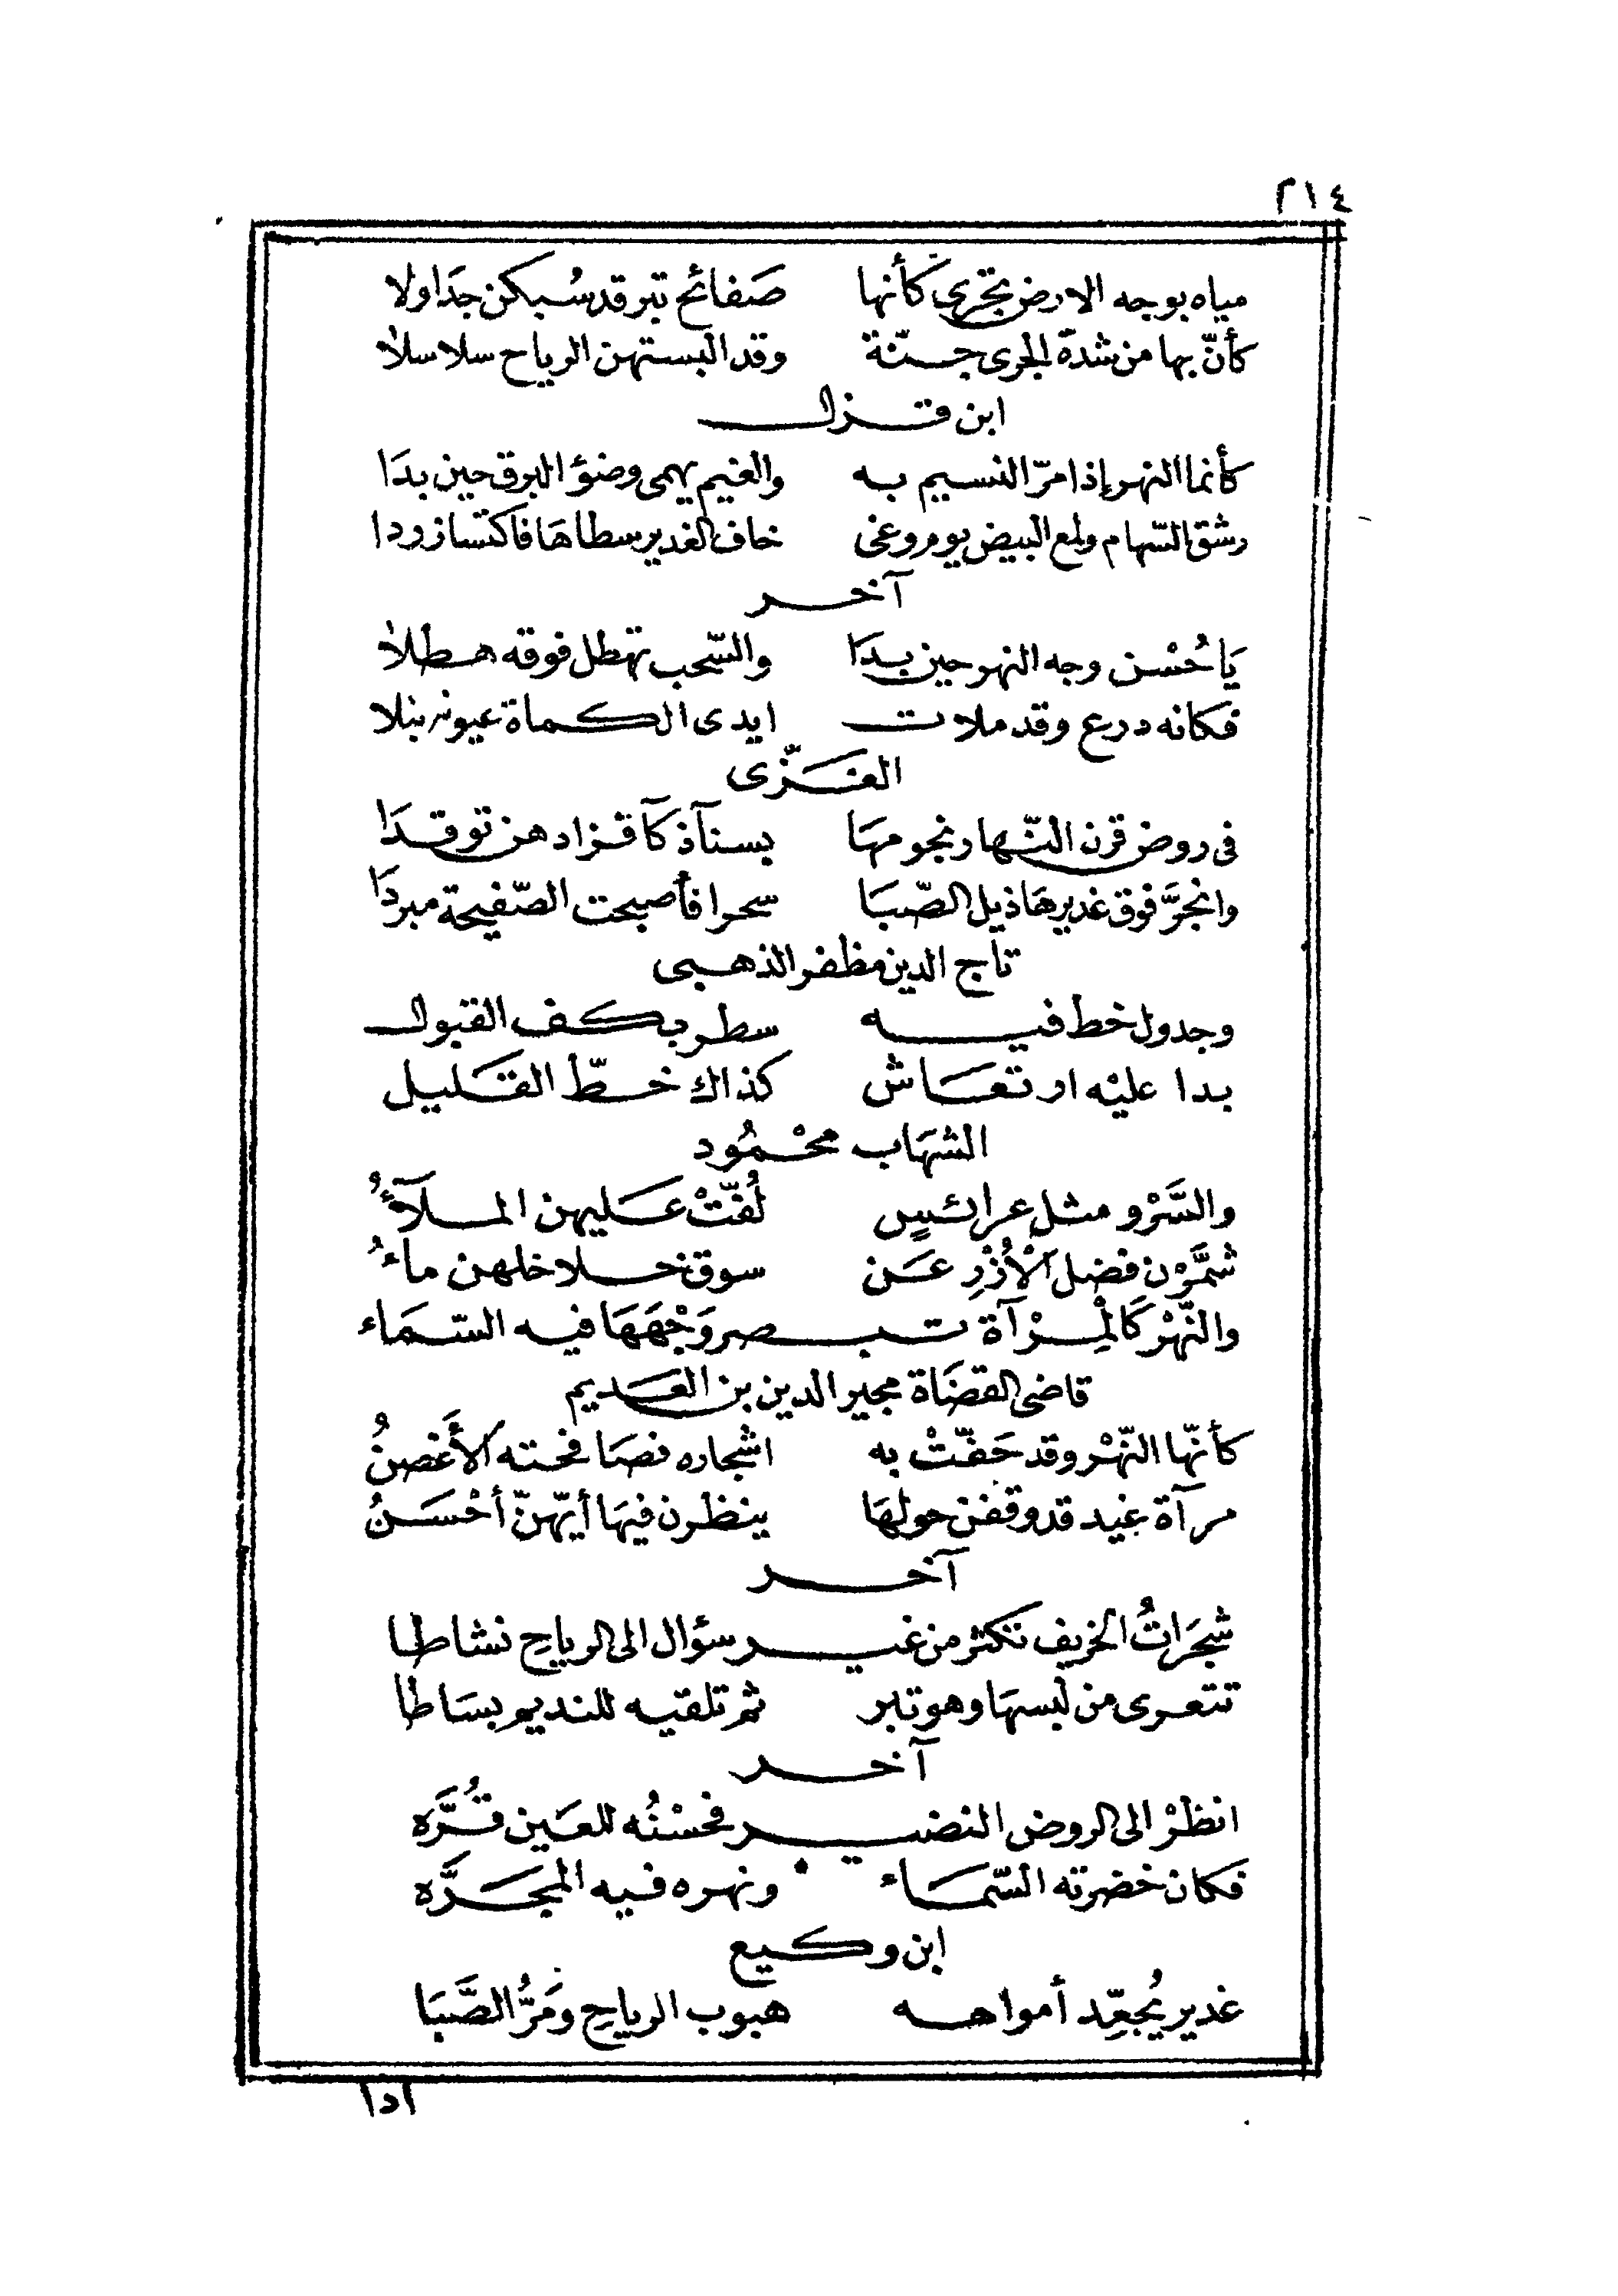 ٢١٤
مياه بوجه الارض تجري كأنها صَفائح تبر قد سُبكن جدَاولا
كأنّ بها من شدة الجرى جنّة وقد البستهن الرياح سلاسلا
ابن قزل
كأنما النهر إذا مرّ النسيم به والغيم يهمى وضؤ البرق حين بدَا
رشق السّهام ولمع البيض يوم وغى خاف الغدير سطاهَا فاكتسا زردا
آخر
يَا حُسْن وجه النهر حين بدَا والسّحب تهطل فوقه هطلا
فكانه درع وقد ملات ايدى الكماة عيونه نبلا
الغَزّى
فى روض قرن النّهار نجومهَا بسنا ذكآ فزادهن توقدَا
وانجرَّ فوق غديرهَا ذيل الصّبَا سحرا فأصبحت الصّفيحة مبردَا
تاج الدين مظفر الذهبى
وجدول خط فيه سطر بكف القبول
بدا عليْه ارتعَاش كذاك خطّ القَليل
الشهَاب محْمُود
والسَّرْو مثل عرائسٍ لُفّتْ عَليهن الملآءُ
شمَّرْن فضل الْأُزْرِ عَن سوق خلاخلهن ماءُ
والنّهْر كَالمِرْآة تبصر وَجْهَهَا فيه السّمَاء
قاضى القضَاة مجير الدين بن العَديم
كأنّها النّهْر وقد حَفّتْ به اشجاره فصَافحته الأَغْصنُ
مرآة غيد قد وقفن حولهَا ينظرن فيهَا أيّهنّ أحْسَنُ
آخر
شجَرَاتُ الخريف تكثر من غير سؤال الى الرياحِ نشاطا
تتعرى من لبسهَا وهو تبر ثم تلقيه للنديم بسَاطا
آخر
انظرْ الى الروض النضير فحُسْنُه للعَين قُرَّه
فكان خضرته السّمَاء ونهره فيه المجَرَّه
ابن وكيع
غدير يُجعِّد أمواهه هبوب الرياحِ ومَرُّ الصَّبَا
اذا